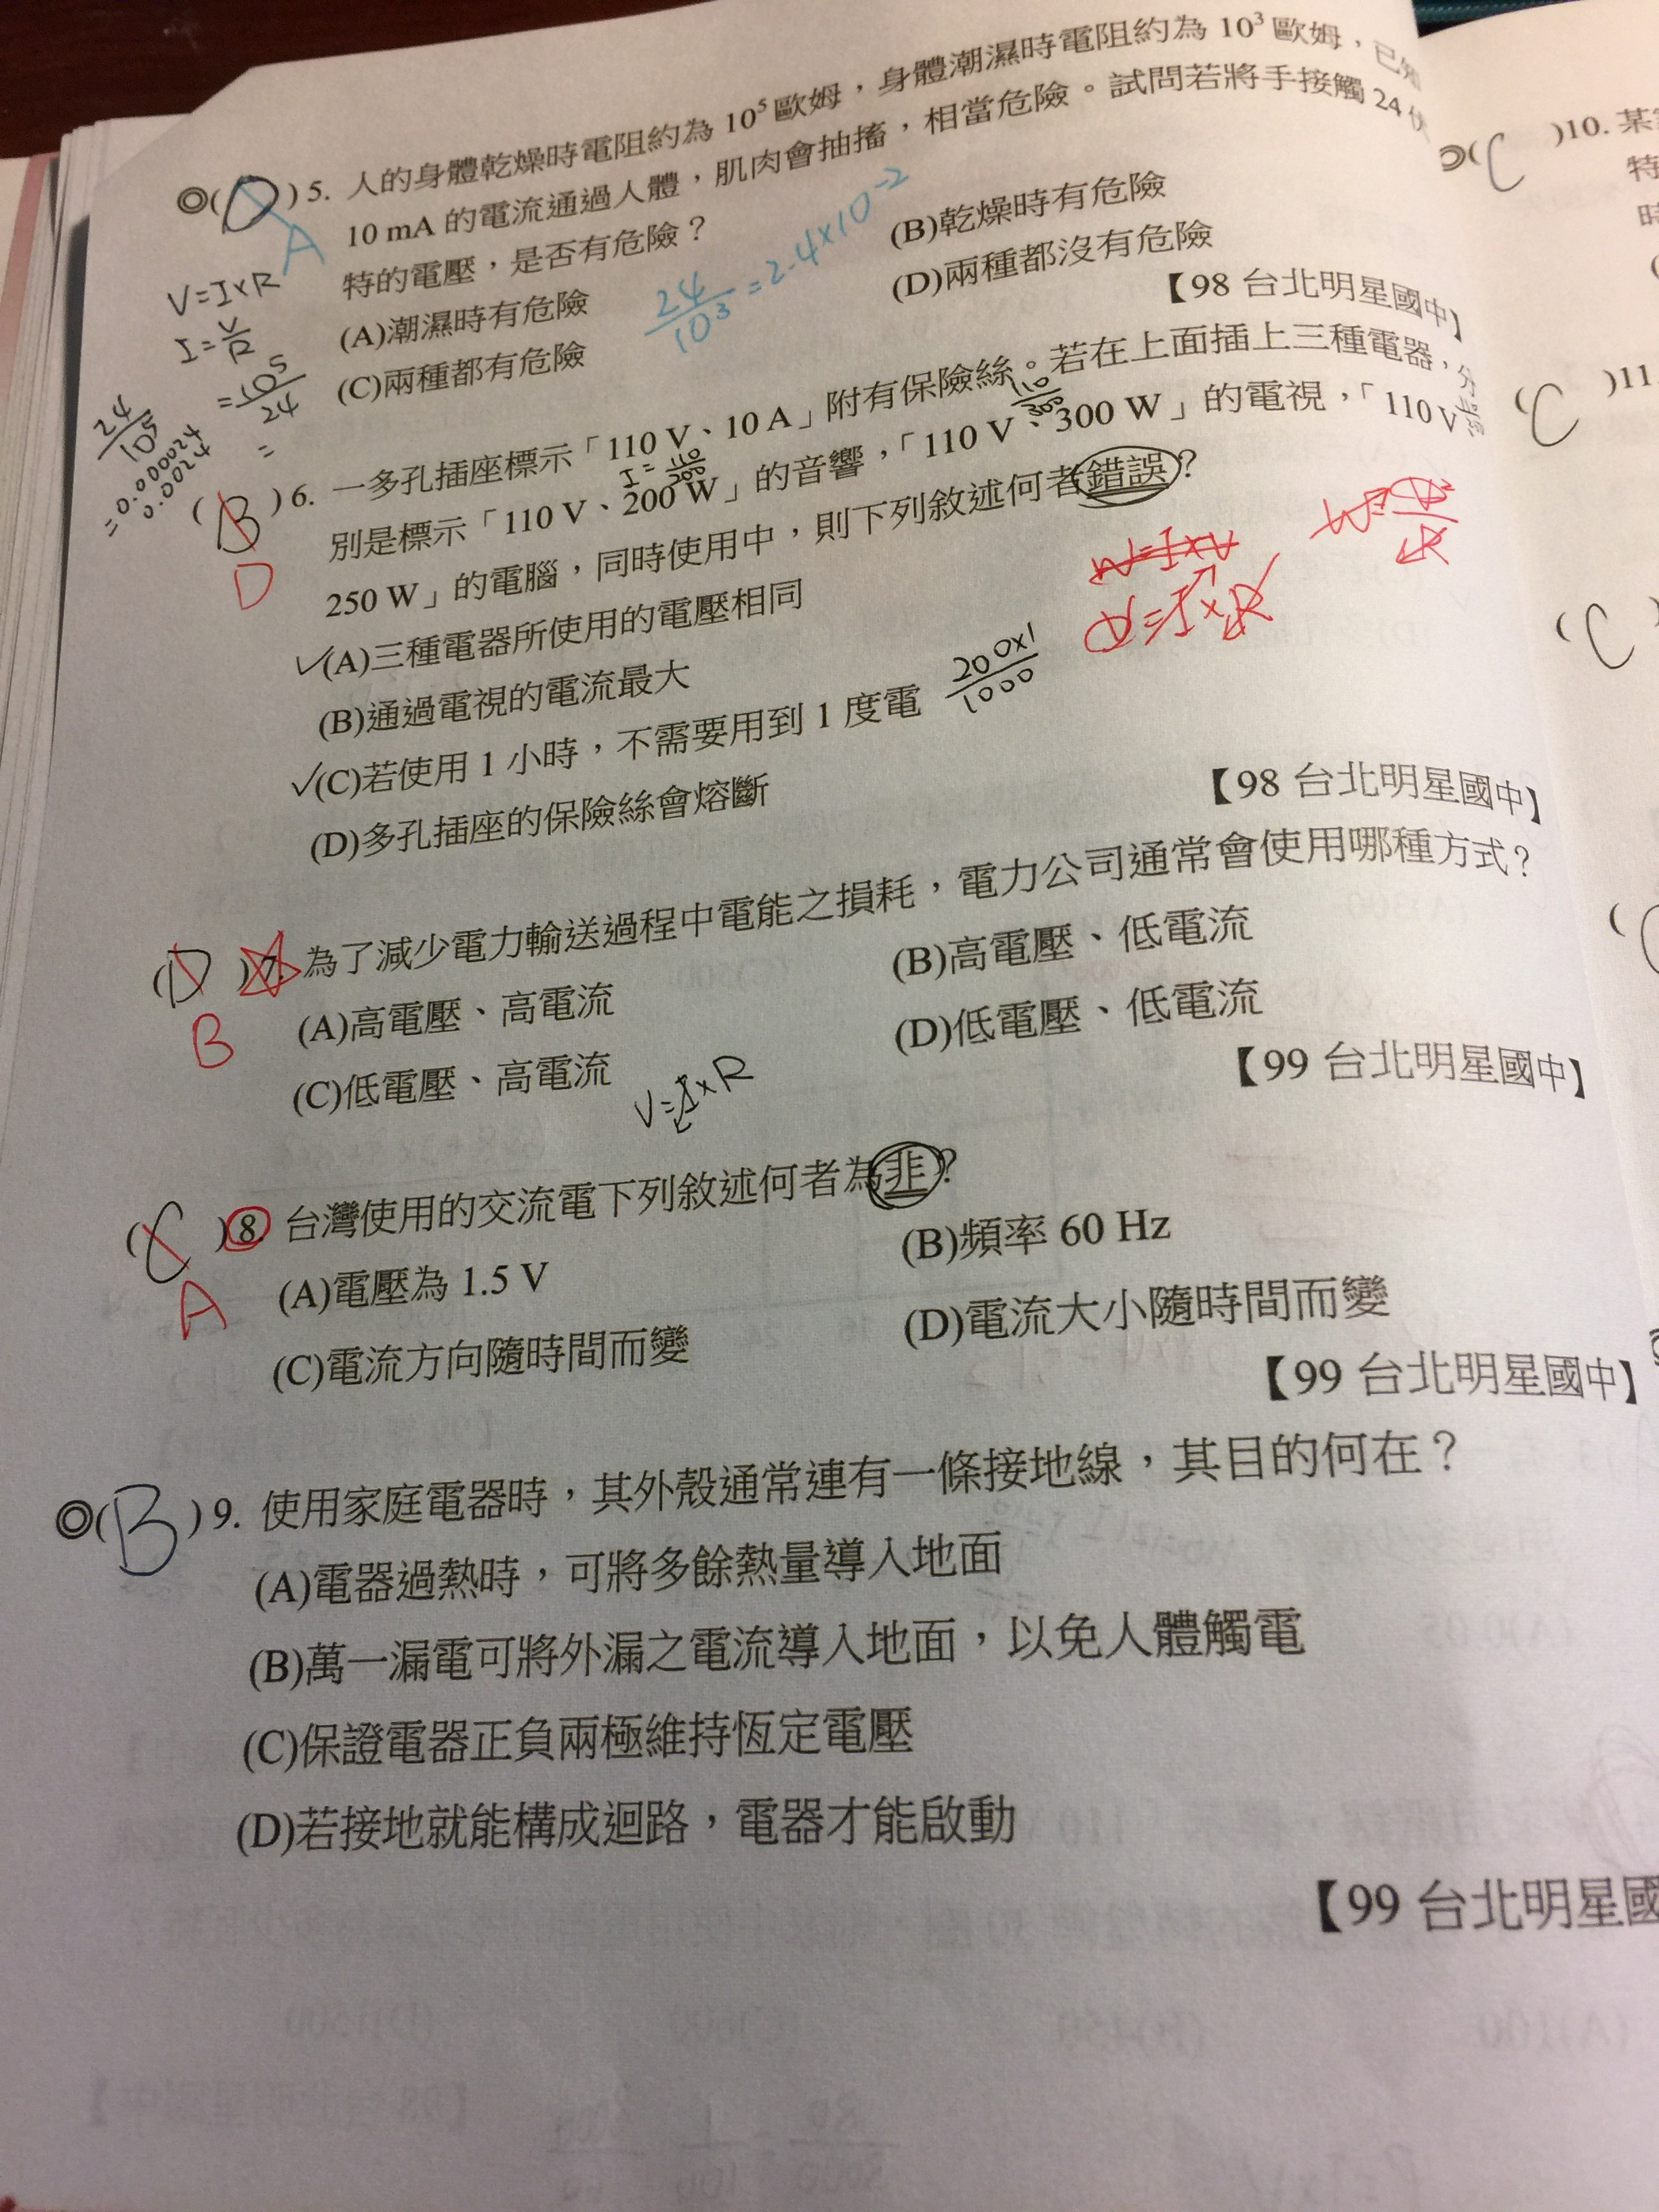 ◎(D)5. 人的身體乾燥時電阻約為 10⁵ 歐姆，身體潮濕時電阻約為 10³ 歐姆，已知
A
10 mA 的電流通過人體，肌肉會抽搐，相當危險。試問若將手接觸 24 伏
特的電壓，是否有危險？
(A)潮濕時有危險 (B)乾燥時有危險
(C)兩種都有危險 (D)兩種都沒有危險
【98 台北明星國中】
V=I×R
I=V/R
=10⁵/24
=
24/10⁵
=0.000024
0.0024
24/10³=2.4×10⁻²
(B)6. 一多孔插座標示「110 V、10 A」附有保險絲。若在上面插上三種電器，分
D
別是標示「110 V、200 W」的音響，「110 V、300 W」的電視，「110 V、
250 W」的電腦，同時使用中，則下列敘述何者錯誤？
✓(A)三種電器所使用的電壓相同
(B)通過電視的電流最大
✓(C)若使用 1 小時，不需要用到 1 度電
200×1/1000
(D)多孔插座的保險絲會熔斷
【98 台北明星國中】
(D)7. 為了減少電力輸送過程中電能之損耗，電力公司通常會使用哪種方式？
B
(A)高電壓、高電流 (B)高電壓、低電流
(C)低電壓、高電流 (D)低電壓、低電流
V=I×R
【99 台北明星國中】
(C)8. 台灣使用的交流電下列敘述何者為非？
A
(A)電壓為 1.5 V (B)頻率 60 Hz
(C)電流方向隨時間而變 (D)電流大小隨時間而變
【99 台北明星國中】
◎(B)9. 使用家庭電器時，其外殼通常連有一條接地線，其目的何在？
(A)電器過熱時，可將多餘熱量導入地面
(B)萬一漏電可將外漏之電流導入地面，以免人體觸電
(C)保證電器正負兩極維持恆定電壓
(D)若接地就能構成迴路，電器才能啟動
【99 台北明星國
(C)10. 某
特
時
(C)11.
(C